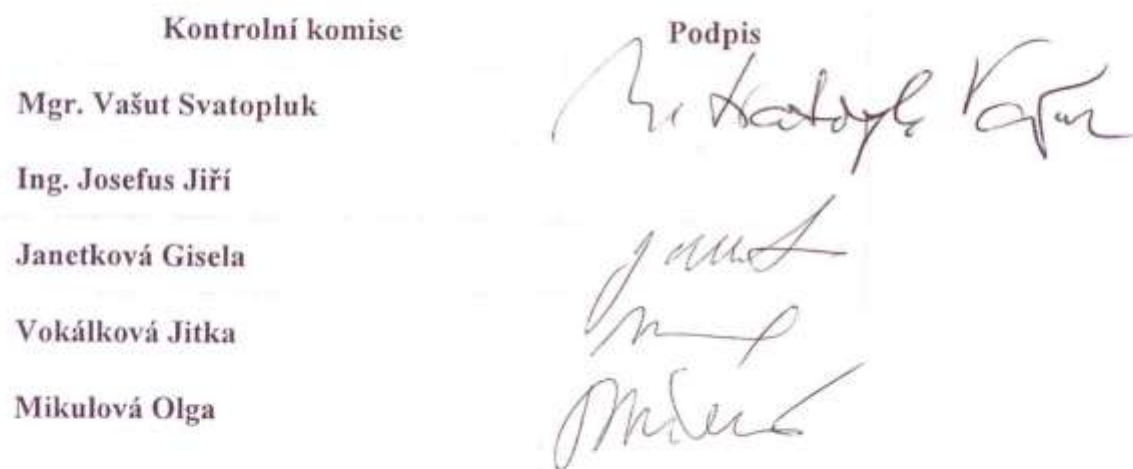 Kontrolní komise Podpis
Mgr. Vašut Svatopluk
Ing. Josefus Jiří
Janetková Gisela
Vokálková Jitka
Mikulová Olga